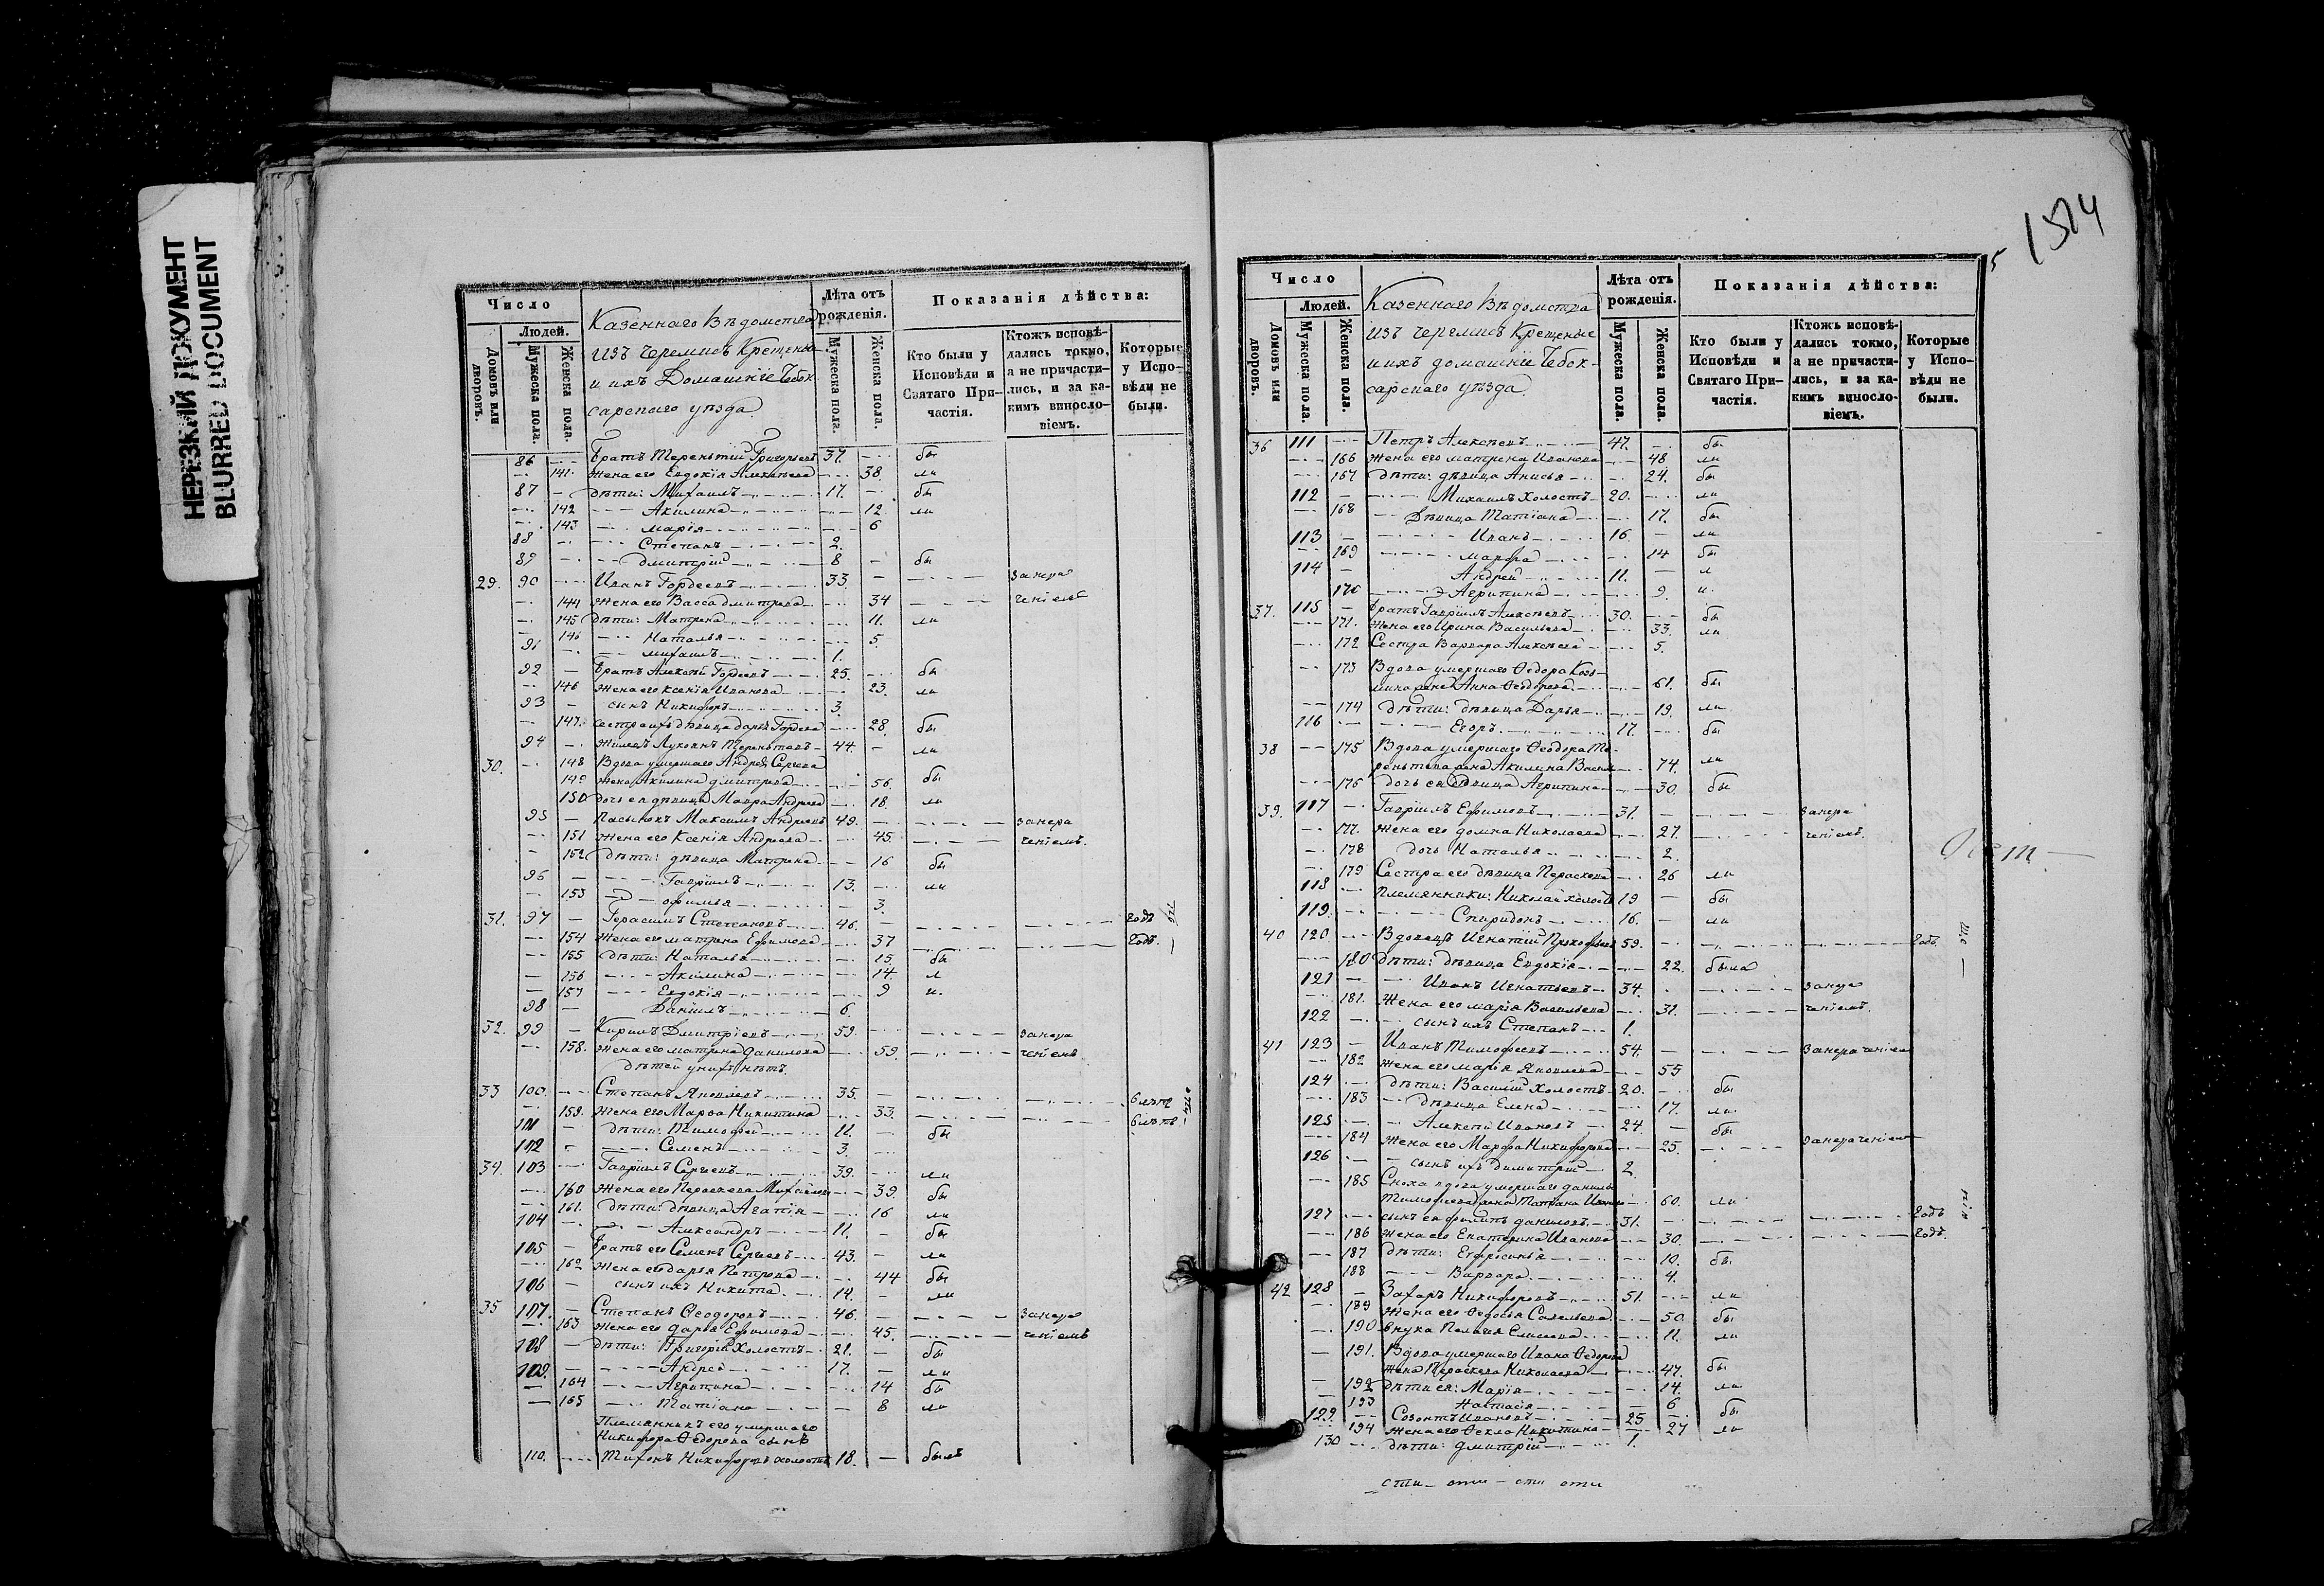 НЕРЕЗКИЙ ДОКУМЕНТ
BLURRED DOCUMENT
Число
Людей.
Домовъ или дворовъ.
Мужеска пола.
Женска пола.
Казеннаго Вѣдомства
изъ Черемисъ Крещеные
и ихъ Домашніе Чебок-
сарскаго уѣзда
Лѣта отъ рожденія.
Мужеска пола.
Женска пола.
Показанія дѣйства:
Кто были у Исповѣди и Святаго При-частія.
Ктожъ исповѣ-дались токмо, а не причасти-лись, и за ка-кимъ винословіемъ.
Которые у Испо-вѣди не были.
86 Братъ Терентій Григорьевъ 37. бы
141. Жена его Евдокія Алексѣева 38. ли
87 Дѣти: Михаилъ 17. бы
142 Акилина 12. ли
143 Марія 6
88 Степанъ 2.
89 Дмитрій 8 бы
29. 90 Иванъ Гордеевъ 33.
144 Жена его Васса Дмитрева 34
145 Дѣти: Матрена 11. ли
146 Наталья 5.
91 Михаилъ 1.
92 Братъ Алексѣй Гордеевъ 25. бы
146 Жена его Ксенія Иванова 23. ли
93 сынъ Никифоръ 3.
147. Сестра ихъ дѣвица Дарья Гордева 28. бы
94 44. ли
30. 148 Вдова умершаго Андрея Сергеева
149 жена Акилина Дмитрева 56. бы
150 Дочь ея дѣвица Мавра Андреева 18. ли
95 Пасынокъ Максимъ Андреевъ 49.
151 Жена его Ксенія Андреева 45.
152 Дѣти: дѣвица Матрена 16 бы
96 Гавріилъ 13. ли
153 Офимья 3.
31. 97 Герасимъ Степановъ 46. 2 годъ
154 Жена его Матрена Ефимова 37 2 годъ.
155 Дѣти: Наталья 15. бы
156 Акилина 14. л
157 Евдокія 9 и.
98 Даніилъ 6
32. 99 Кирилъ Дмитріевъ 59.
158. Жена его Матрена Данилова 59.
Дѣтей у нихъ нѣтъ.
33 100. Степанъ Яковлевъ 35. 6 лѣтъ
159. Жена его Марѳа Никитина 33. 6 лѣтъ
101 Дѣти: Тимофей 11. бы
102 Семенъ 3.
34. 103 Гавріилъ Сергеевъ 39. ли
160 Жена его Параскева Михайлова 39. бы
161. Дѣти: дѣвица Агапія 16 ли
104 Александръ 11. бы
105 Братъ его Семенъ Сергеевъ 43. ли
162 Жена его Дарья Петрова 44 бы
106 сынъ ихъ Никита. 14. ли
35 107. Степанъ Ѳеодоровъ 46.
163 Жена его Дарья Ефимова 45.
108 Дѣти: Григорій Холостъ 21. бы
109. Андрей 17. ли
164 Агрипина 14 бы
165 Татіана 8 ли
Племянникъ его умершаго
Никифора Ѳедорова сынъ
110. Тихонъ Никифоровъ холостъ 18. былъ
1514
5
Число
Людей.
Домовъ или дворовъ.
Мужеска пола.
Женска пола.
Казеннаго Вѣдомства
изъ Черемисъ Крещеные
и ихъ домашніе Чебок-
сарскаго уѣзда.
Лѣта отъ рожденія.
Мужеска пола.
Женска пола.
Показанія дѣйства:
Кто были у Исповѣди и Святаго При-частія.
Ктожъ исповѣ-дались токмо, а не причасти-лись, и за ка-кимъ винословіемъ.
Которые у Испо-вѣди не были.
36 111 Петръ Алексѣевъ 47. бы
166 Жена его Матрена Иванова 48 ли
167 Дѣти: дѣвица Анисья 24. бы
112 Михаилъ Холостъ 20. ли
168 Дѣвица Татіана 17. бы
113 Иванъ 16. ли
169 Марфа 14 бы
114 Андрей 11. л
170 Агрипина 9. и.
37. 115 Братъ Гавріилъ Алексѣевъ 30. бы
171. Жена его Ирина Васильева 33. ли
172 Сестра Варвара Алексѣева 5.
173 Вдова умершаго Ѳедора Козь-
мина жена Анна Ѳеодорова 61. бы
174 Дѣти: дѣвица Дарья 19. ли
116 Егоръ. 17. бы
38 175 Вдова умершаго Ѳеодора Те-
рентева жена Акилина 74. ли
176 дочь ея дѣвица Агрипина 30. бы
39. 117 Гавріилъ Ефимовъ 31.
177. Жена его Домна Николаева 27.
178 дочь Наталья 2.
179 Сестра его дѣвица Параскева 26 ли
118 Племянники: Николай холостъ 19 бы
119. Спиридонъ 16. ли
40 120. Вдовецъ Игнатій Прокофьевъ 59. 2 годъ.
180 Дѣти: дѣвица Евдокія 22. была
121 Иванъ Игнатьевъ 34.
181. Жена его Марія Васильева 31.
122 сынъ ихъ Степанъ 1.
41 123 Иванъ Тимофеевъ 54.
182 Жена его Марія Яковлева 55
124 Дѣти: Василій Холостъ 20. бы
183 Дѣвица Елена 17. ли
125 Алексѣй Ивановъ 24. бы
184 Жена его Марфа Никифорова 25.
126 сынъ ихъ Димитрій 2
185 Сноха вдова умершаго Данилы
Тимофеева жена Татіана 60. ли
127 сынъ ея Филипъ Даниловъ 31. 2 годъ
186 Жена его Екатерина Иванова 30. 2 годъ.
187 Дѣти: Ефросинья 10. бы
188 Варвара 4.
42 128 Захаръ Никифоровъ 51. ли
189 Жена его Ѳедосья Савельева 50. бы
190 Внука Пелагея 11. ли
191. Вдова умершаго Ивана Ѳедорова
жена Параскева Николаева 47. бы
192 Дѣти ея: Марія 14. ли
193 Настасія 6
129. Созонтъ Ивановъ 25 бы
194 Жена его Ѳекла Никитина 27 ли
130 Дѣти: Дмитрій 1.